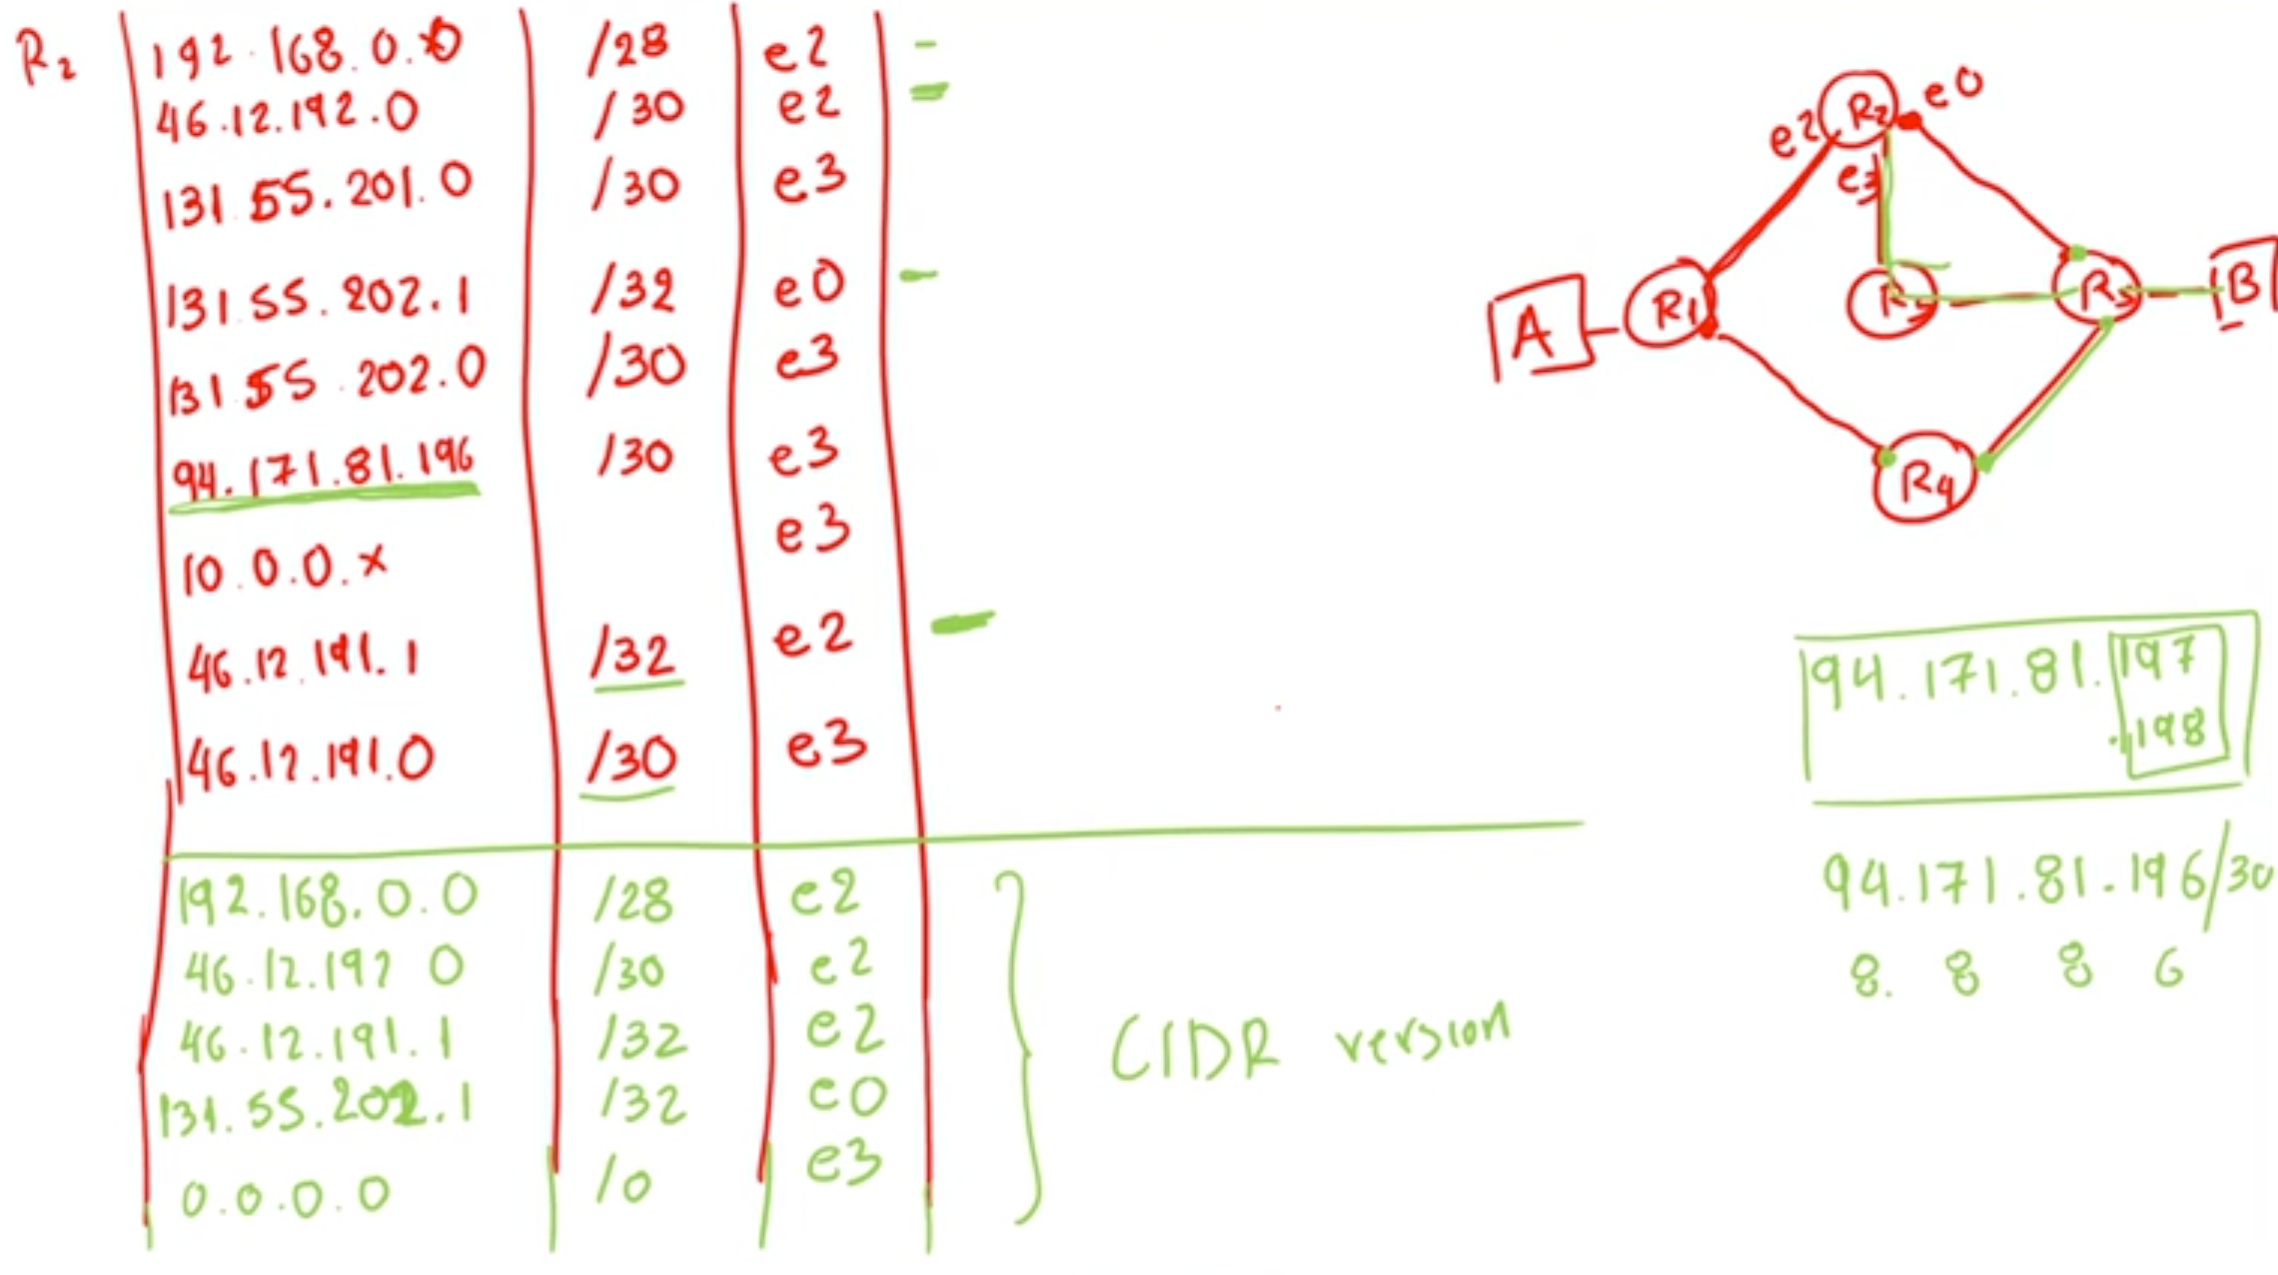 R2 192.168.0.0 /28 e2 -
46.12.192.0 /30 e2
131.55.201.0 /30 e3
131.55.202.1 /32 e0 -
131.55.202.0 /30 e3
94.171.81.196 /30 e3
10.0.0.x e3
46.12.191.1 /32 e2
46.12.191.0 /30 e3
192.168.0.0 /28 e2
46.12.192 0 /30 e2
46.12.191.1 /32 e2
131.55.202.1 /32 e0
0.0.0.0 /0 e3
CIDR version
R2 e0
e2
e3
A R1 B
R4
94.171.81.197
.198
94.171.81.196/30
8. 8 8 6